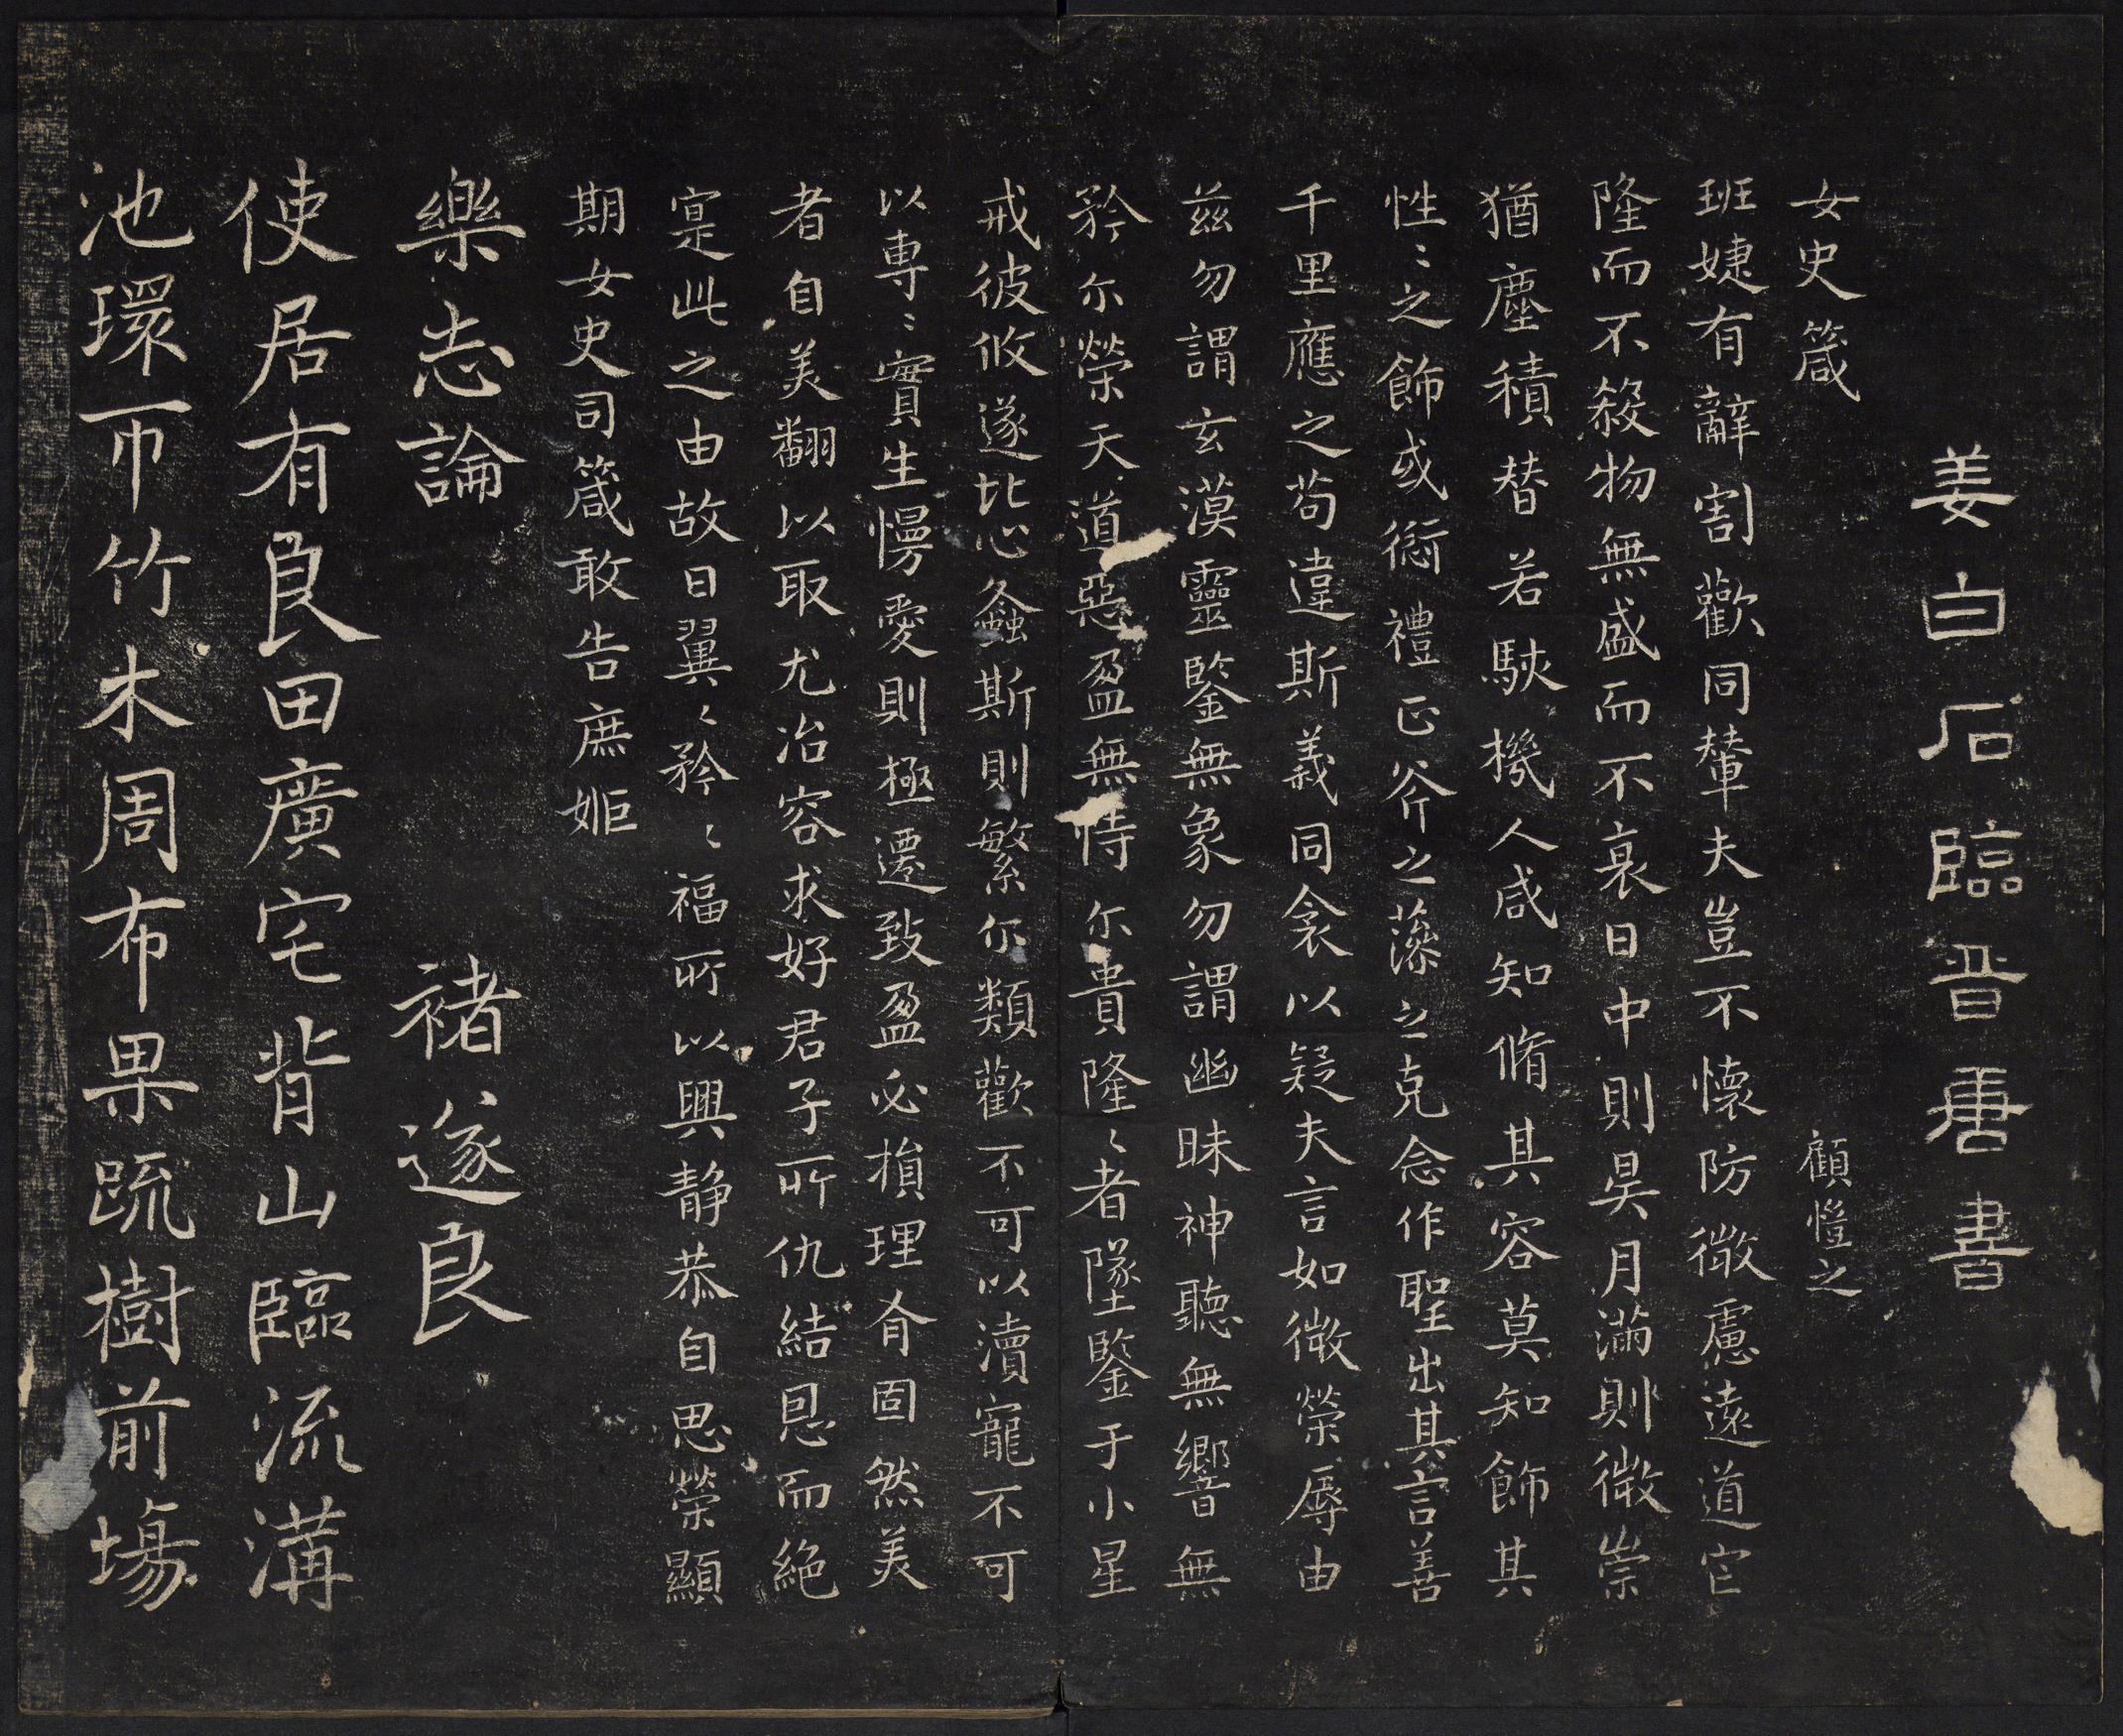 姜白石臨晉唐書
女史箴 顧愷之
班婕有辭割歡同輦夫豈不懷防微慮遠道它
隆而不殺物無盛而不衰日中則昃月滿則微崇
猶塵積替若駭機人咸知脩其容莫知飾其
性〻之飾或愆禮正斧之藻之克念作聖出其言善
千里應之苟違斯義同衾以疑夫言如微榮辱由
茲勿謂玄漠靈鑒無象勿謂幽昧神聽無響無
矜尔榮天道惡盈無恃尔貴隆〻者墜鑒于小星
戒彼攸遂比心螽斯則繁尔類歡不可以瀆寵不可
以專〻實生慢愛則極遷致盈必損理有固然美
者自美翩以取尤冶容求好君子所仇結恩而絕
寔此之由故曰翼〻矜〻福所以興静恭自思榮顯
期女史司箴敢告庶姬
樂志論 褚遂良
使居有良田廣宅背山臨流溝
池環帀竹木周布果蹴樹前場